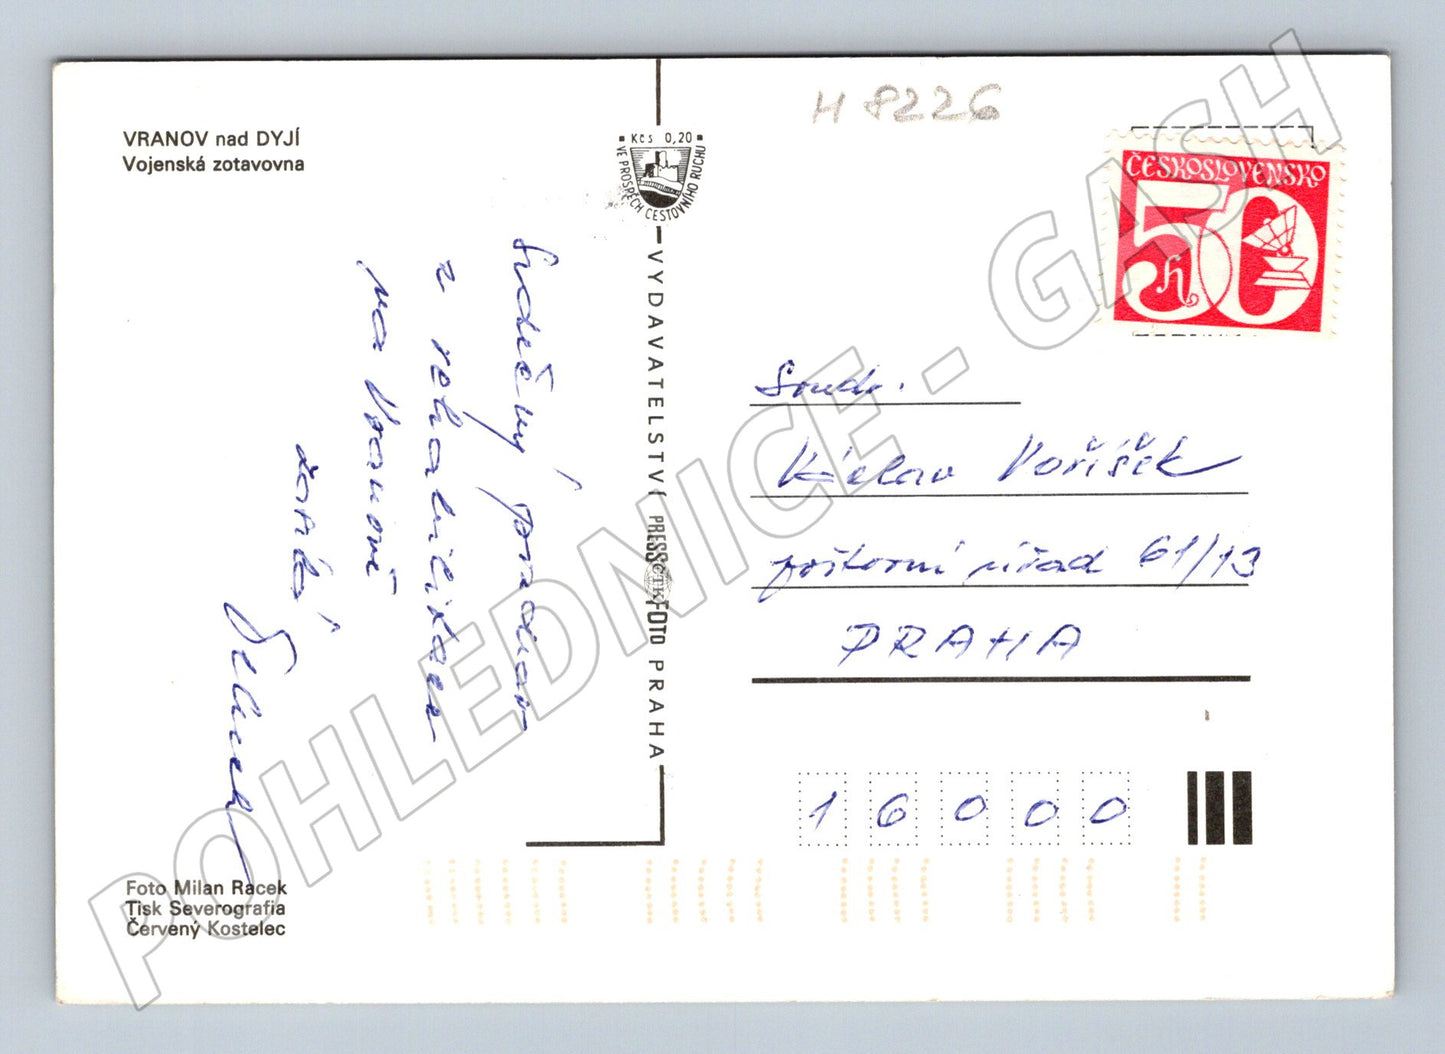 VRANOV nad DYJÍ
Vojenská zotavovna
Srdečný pozdrav
z rehabilitace
na Vranově
zasílá
Foto Milan Racek
Tisk Severografia
Červený Kostelec
Kčs 0,20
VE PROSPĚCH CESTOVNÍHO RUCHU
VYDAVATELSTVÍ PRESSFOTO PRAHA
ČTK
H 8226
ČESKOSLOVENSKO
50 h
Soudr.
Václav Voříšek
poštovní úřad 61/13
PRAHA
16000
POHLEDNICE - GASH